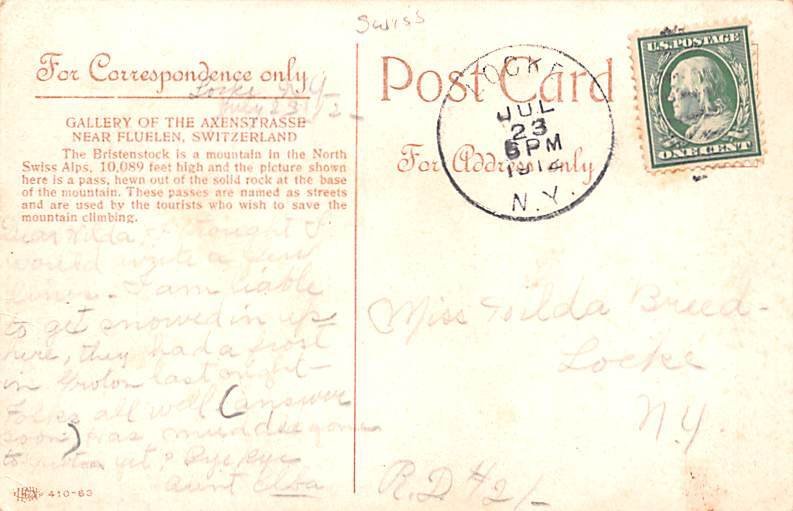 Swiss
For Correspondence only
Locke N.Y.
July 23
GALLERY OF THE AXENSTRASSE
NEAR FLUELEN, SWITZERLAND
The Bristenstock is a mountain in the North
Swiss Alps, 10,089 feet high and the picture shown
here is a pass, hewn out of the solid rock at the base
of the mountain. These passes are named as streets
and are used by the tourists who wish to save the
mountain climbing.
Dear Wilda, I thought I
would write a few
lines. I am liable
to get snowed in up
here, they had a frost
in Groton last night-
Folks all well (answer
soon) has
to ? Bye, Bye
Aunt Elba
410-63
Post Card
For Address only
LOCKE
JUL
23
6 PM
1912
N.Y.
U.S. POSTAGE
ONE CENT
Miss Wilda Breed-
Locke
N.Y.
R.D. #2